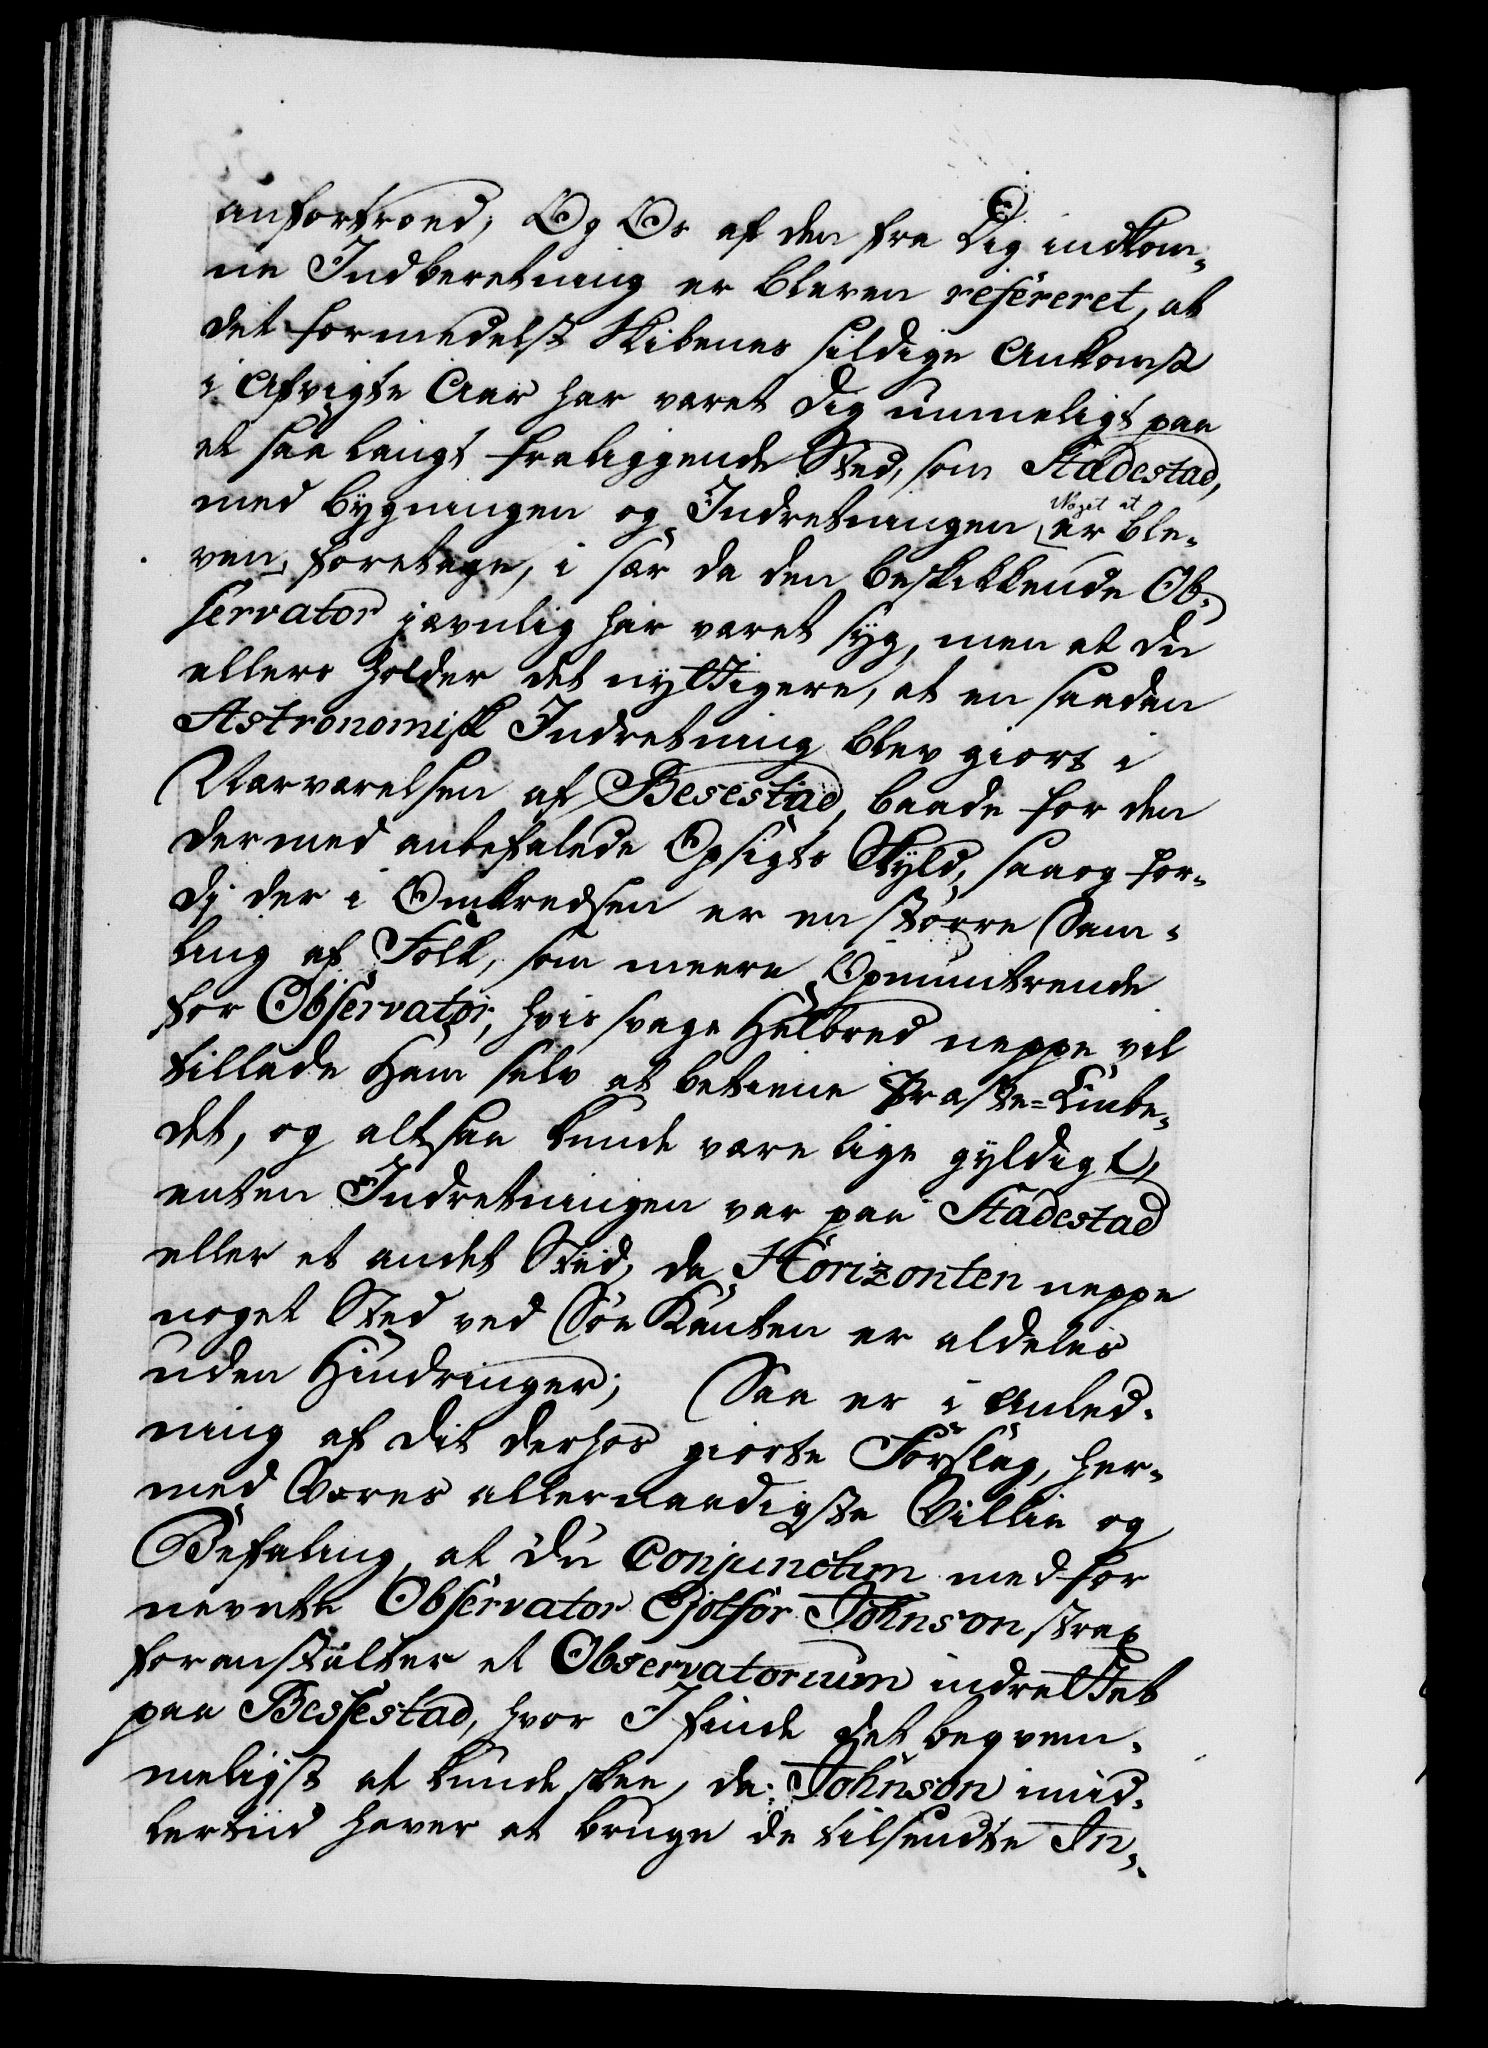 anfortroed; Og Os af den fra Dig indkom¬
ne Indberetning er bleven refereret, at
det formedelst Skibenes sildige Ankomst
i Afvigte Aar har været Dig umueligt paa
et saa langt fraliggende Sted, som Stadestad,
med bygningen og Indretningen Noget at er ble¬
ven, foretage, i sær da den beskikkende Ob¬
servator jævnlig har været syg, men at du
ellers holder det nyttigere, at en saadan
Astronomisk Indretning blev giort i
Nærværelsen af Besestad, baade for den
dermed anbefalede Opsigts Skyld, saa og for¬
di der i Omkredsen er en større Sam¬
ling af Folk, som meere Opmuntrende
for Observator, hvis svage Helbred neppe vil
tillade Ham selv at betiene Præste-Embe¬
det, og altsaa kunde være lige gyldigt,
enten Indretningen var paa Stadestad
eller et andet Sted, da Horizonten neppe
noget Sted ved Søe Kanten er aldeles
uden Hindringer; Saa er i Anled¬
ning af dit derhos giorte Forslag, her¬
med Vores allernaadigste Villie og
Befaling, at du conjunctim med for
nevnte Observator Ejolfor Johnson strax
foranstalter et Observatorium indrettet
paa Bessestad, hvor I finde det beqvem¬
meligst at kunde skee, da Johnson imid¬
lertiid haver at bruge de tilsendte In¬